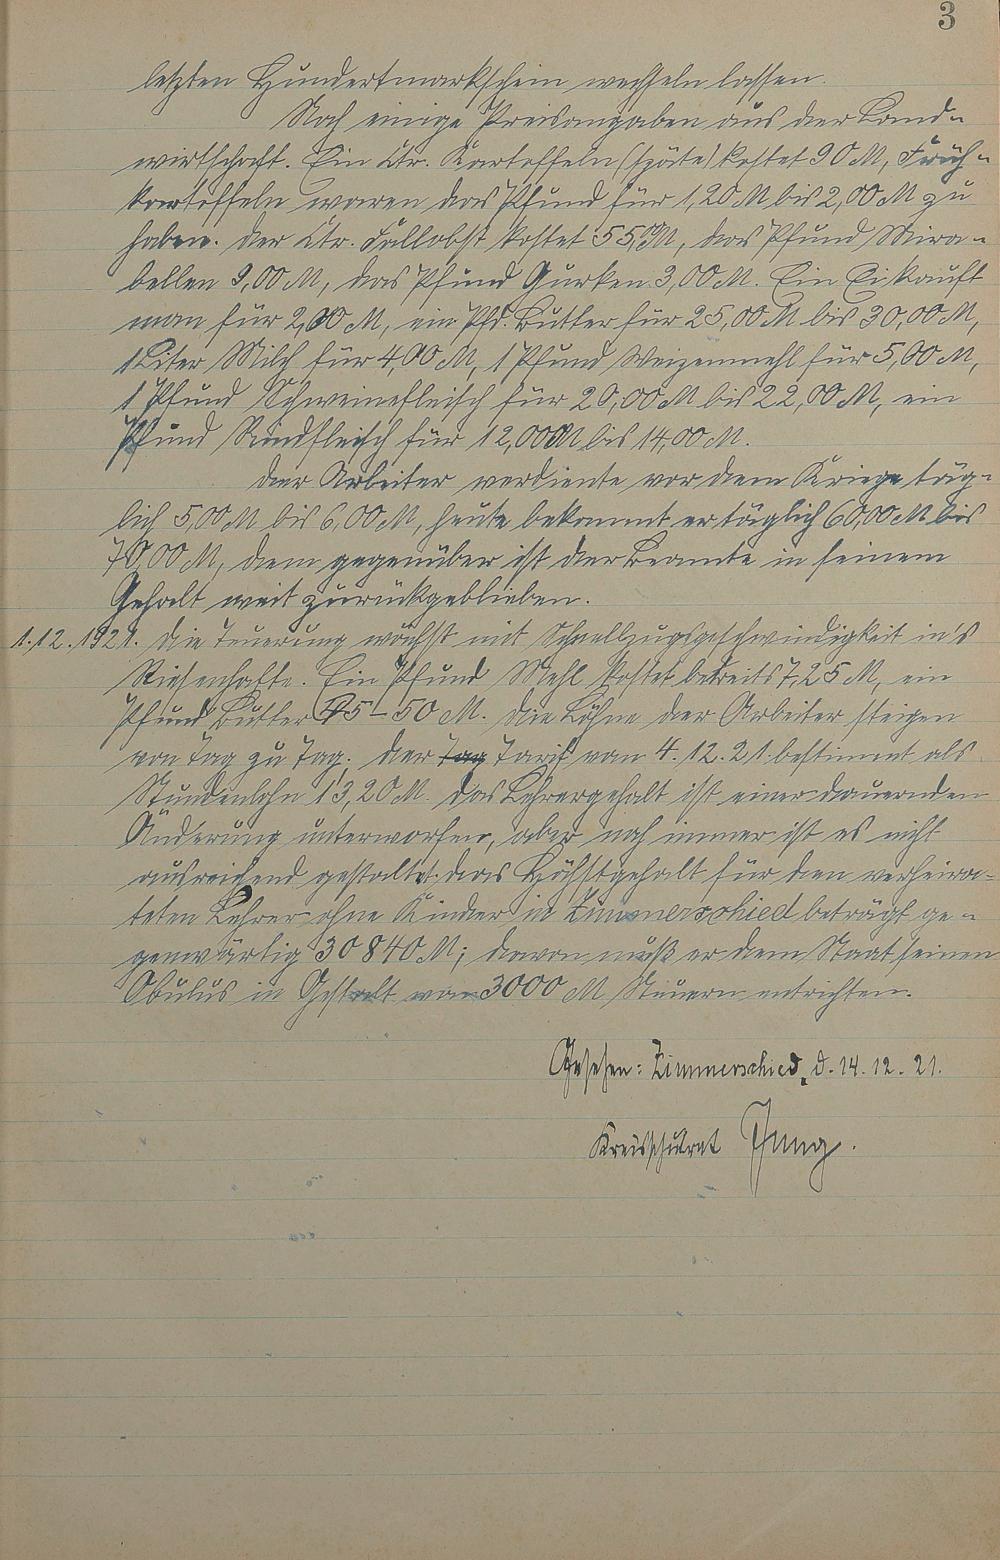 3
letzten Hundertmarkschein wechseln lassen.
Noch einige Preisangaben aus der Land-
wirtschaft. Ein Ctr. Kartoffeln (späte) kostet 90 M, Früh-
kartoffeln waren das Pfund für 1,20 M bis 2,00 M zu
haben. Der Ctr. Fallobst kostet 55 M, das Pfund Mira-
bellen 3,00 M, das Pfund Gurken 3,00 M. Ein Ei kauft
man für 2,00 M, ein Pfd. Butter für 25,00 M bis 30,00 M,
1 Liter Milch für 4,00 M, 1 Pfund Weizenmehl für 5,00 M,
1 Pfund Schweinefleisch für 20,00 M bis 22,00 M, ein
Pfund Rindfleisch für 12,00 M bis 14,00 M.
Der Arbeiter verdiente vor dem Kriege täg-
lich 5,00 M bis 6,00 M, heute bekommt er täglich 60,00 M bis
70,00 M, dem gegenüber ist der Beamte in seinem
Gehalt weit zurückgeblieben.
1.12.1921. Die Teuerung wächst mit Schnellzugsgeschwindigkeit in's
Riesenhafte. Ein Pfund Mehl kostet bereits 7,25 M, ein
Pfund Butter 45–50 M. Die Löhne der Arbeiter steigen
von Tag zu Tag. Der Tag Tarif vom 4.12.21. bestimmt als
Stundenlohn 13,20 M. Das Lehrergehalt ist einer dauernden
Änderung unterworfen, aber noch immer ist es nicht
ausreichend gestaltet. Das Höchstgehalt für den verheira-
teten Lehrer ohne Kinder in Zimmerschied beträgt ge-
genwärtig 30840 M; davon muß er dem Staat seinen
Obulus in Gestalt von 3000 M Steuern entrichten.
Gesehen: Zimmerschied, d. 14.12.21.
Kreisschulrat Jung.